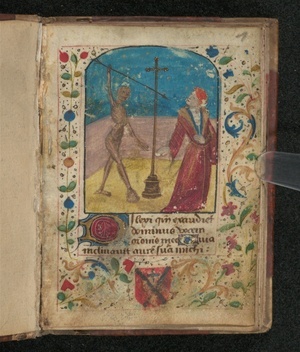 Dilexi qm exaudiet
dominus vocem
oronis mee Quia
inclinauit aure sua michi :